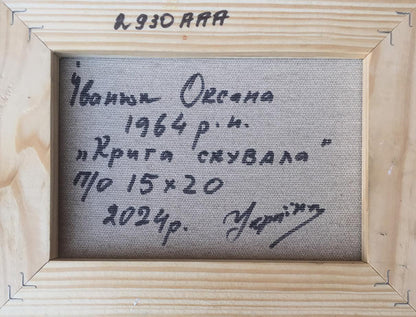 2930AAA
Іванюк Оксана
1964 р.н.
„Крига скувала"
п/о 15х20
2024р.